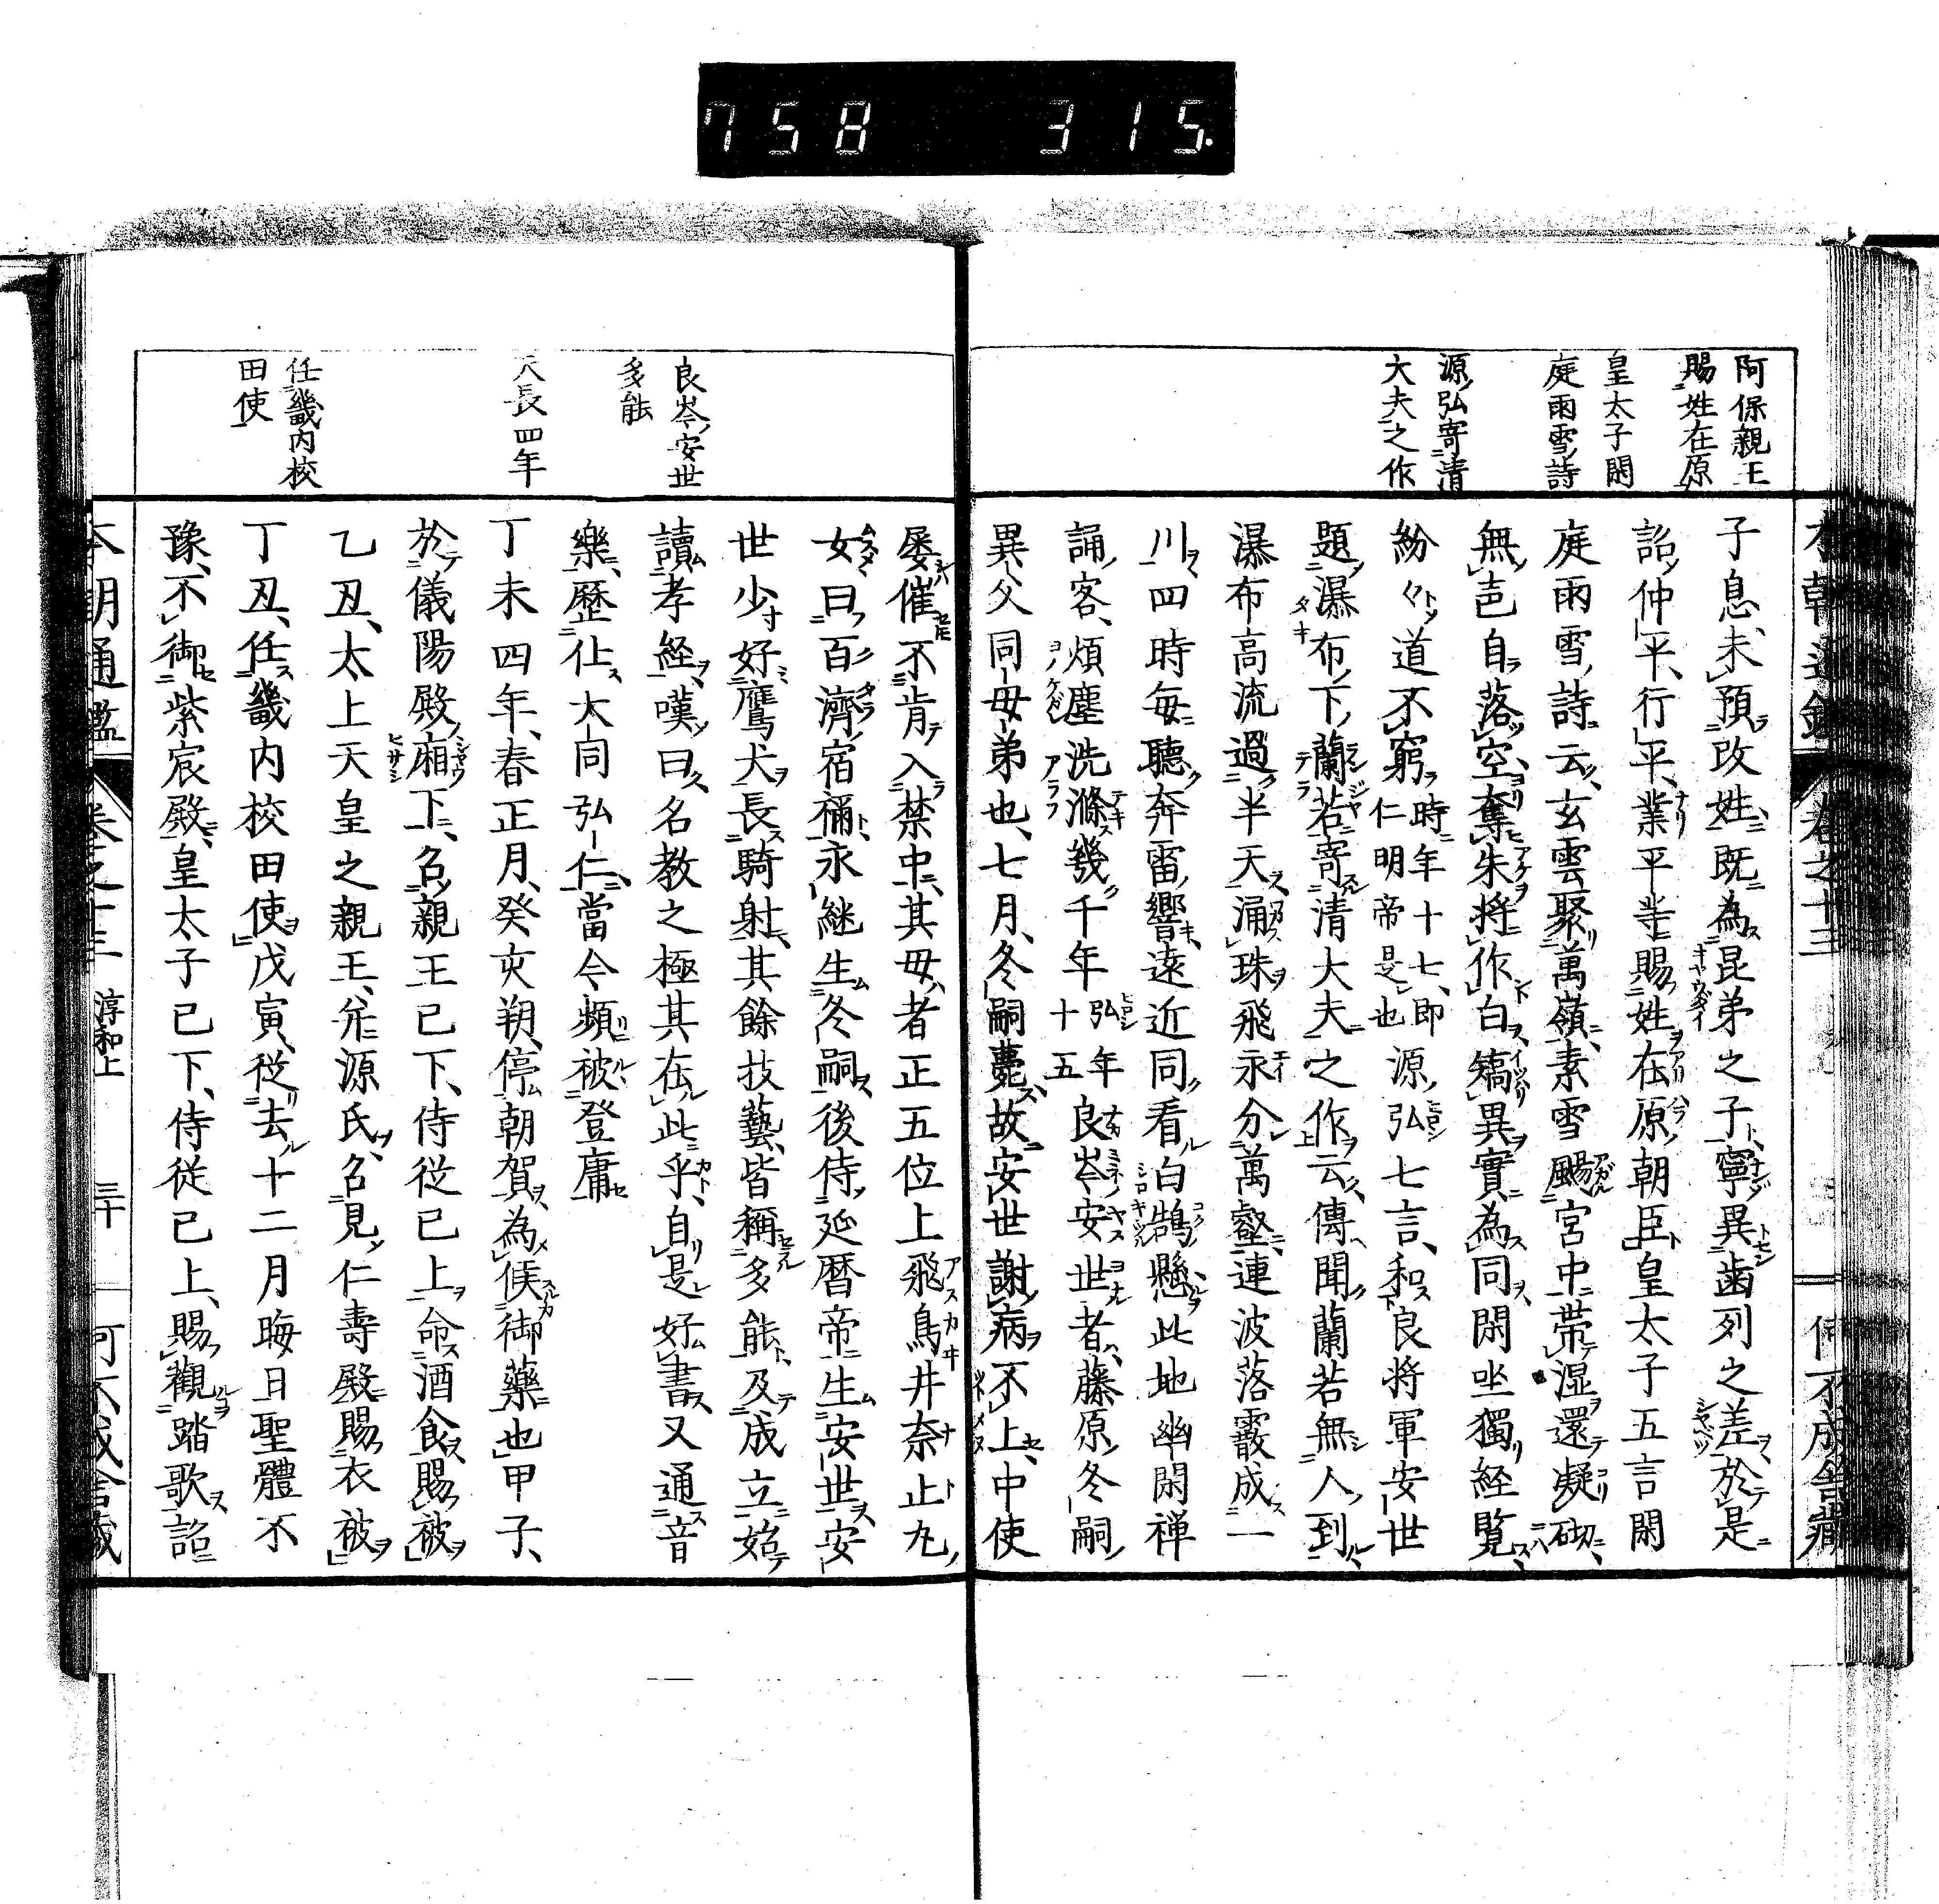 758 315.
阿保親王
賜姓在原
皇太子閑
庭雨雪詩
源弘寄清
大夫之作
子息未預改姓既為昆弟之子寧異歯列之差於是
詔仲平行平業平等賜姓在原朝臣皇太子五言閑
庭雨雪詩云玄雲聚萬嶺素雪颺宮中帯湿還凝砌
無色自落空奪朱將作白矯異實為同閑坐獨経覧
紛々道不窮時年十七即仁明帝是也源弘七言和良将軍安世
題瀑布下蘭若寄清大夫之作云傳聞蘭若無人到
瀑布高流過半天涌珠飛永分萬壑連波落霰成一
川四時毎聽奔雷響遠近同看白鵠懸此地幽閑禅
誦客煩塵洗滌幾千年弘年十五良岑安世者藤原冬嗣
異父同母弟也七月冬嗣薨故安世謝病不上中使
良岑安世
多能
天長四年
任畿内校
田使
屡催不肯入禁中其母者正五位上飛鳥井奈止丸
女曰百濟宿禰永継生冬嗣後侍延暦帝生安世安
世少好鷹犬長騎射其餘技藝皆稱多能及成立始
讀孝経嘆曰名教之極其在此乎自是好書又通音
樂歴仕大同弘仁當今頻被登庸
丁未四年春正月癸亥朔停朝賀為候御藥也甲子
於儀陽殿廂下召親王已下侍従已上命酒食賜被
乙丑太上天皇之親王并源氏召見仁壽殿賜衣被
丁丑任畿内校田使戊寅従去十二月晦日聖體不
豫不御紫宸殿皇太子已下侍従已上賜觀踏歌詔
本朝通鑑 卷之十三 淳和上 三十